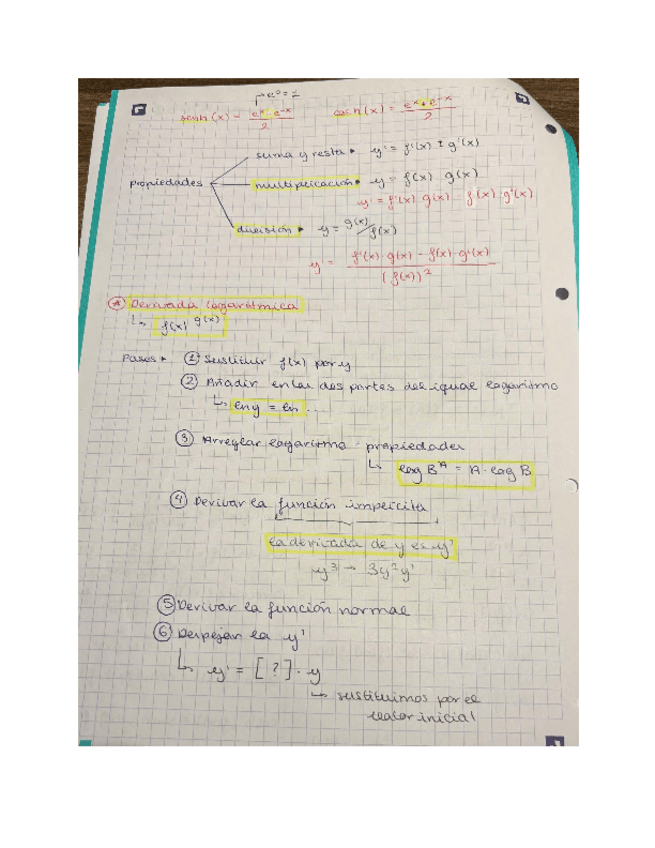 e⁰ = 1
senh(x) = (eˣ - e⁻ˣ)/2    cosh(x) = (eˣ + e⁻ˣ)/2
suma y resta ▸ y' = f'(x) ± g'(x)
propiedades
multiplicación ▸ y = f(x) · g(x)
y' = f'(x) · g(x) f(x) · g'(x)
división ▸ y = g(x)/f(x)
y' = (f'(x) · g(x) - f(x) · g'(x))/(f(x))²
Derivada logarítmica
↳ f(x)^g(x)
Pasos ▸ ① Sustituir f(x) por y
② Añadir en las dos partes del igual logaritmo
↳ ln y = ln ...
③ Arreglar logaritmo - propiedades
↳ log Bᴬ = A · log B
④ Derivar la función implícita
la derivada de y es y'
y³ → 3y²y'
⑤ Derivar la función normal
⑥ Despejar la y'
↳ y' = [?] · y
↳ sustituimos por el
valor inicial